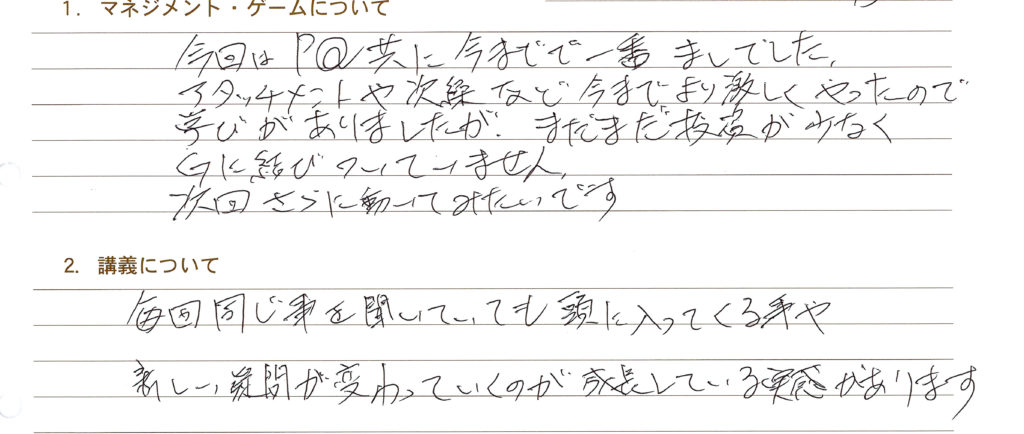 1. マネジメント・ゲームについて
今回は P@ 共に 今までで一番 ましでした。
アタッチメントや 次繰 など 今までより 激しく やったので
学びが ありましたが、まだまだ 投資が 少なく
Gに 結びついていません。
次回 さらに 動いてみたいです
2. 講義について
毎回 同じ事を 聞いていても 頭に 入ってくる事や
新しい 疑問が 変わっていくのが 成長している 実感があります